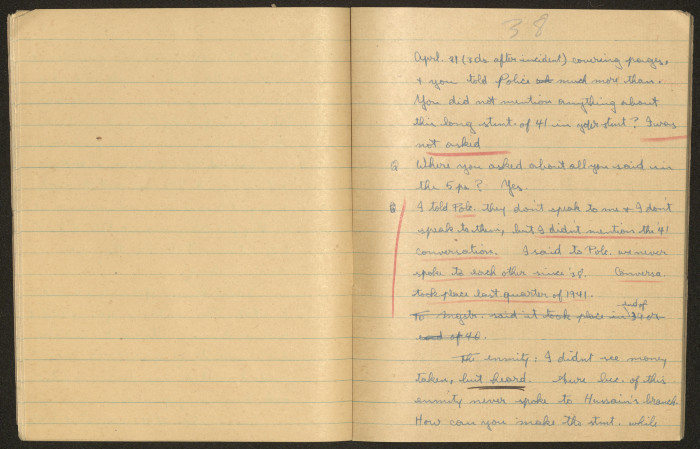 38
April. 21 (3 ds. after incident) covering pages,
& you told Police much more than.
You did not mention anything about
this long stmt. of 41 in yder stmt? I was
not asked
Q Where you asked about all you said in
the 5 ps? Yes.
Q I told Pole. they don't speak to me & I don't
speak to them, but I didn't mention the '41
conversation. I said to Pole. we never
spoke to each other since '38. Conversa.
took place last quarter of 1941.
To Mgstr. said it took place in end of 39 or
end of 40.
The enmity: I didnt see money
taken, but heard. Sure bec. of this
enmity never spoke to Hussain's branch.
How can you make the stmt. while